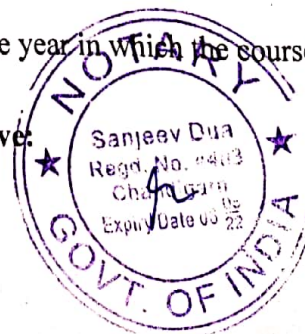 e year in which the course
ve:
NOTARY
Sanjeev Dua
Regd. No.
Chandigarh
Expiry Date 06
22
GOVT. OF INDIA